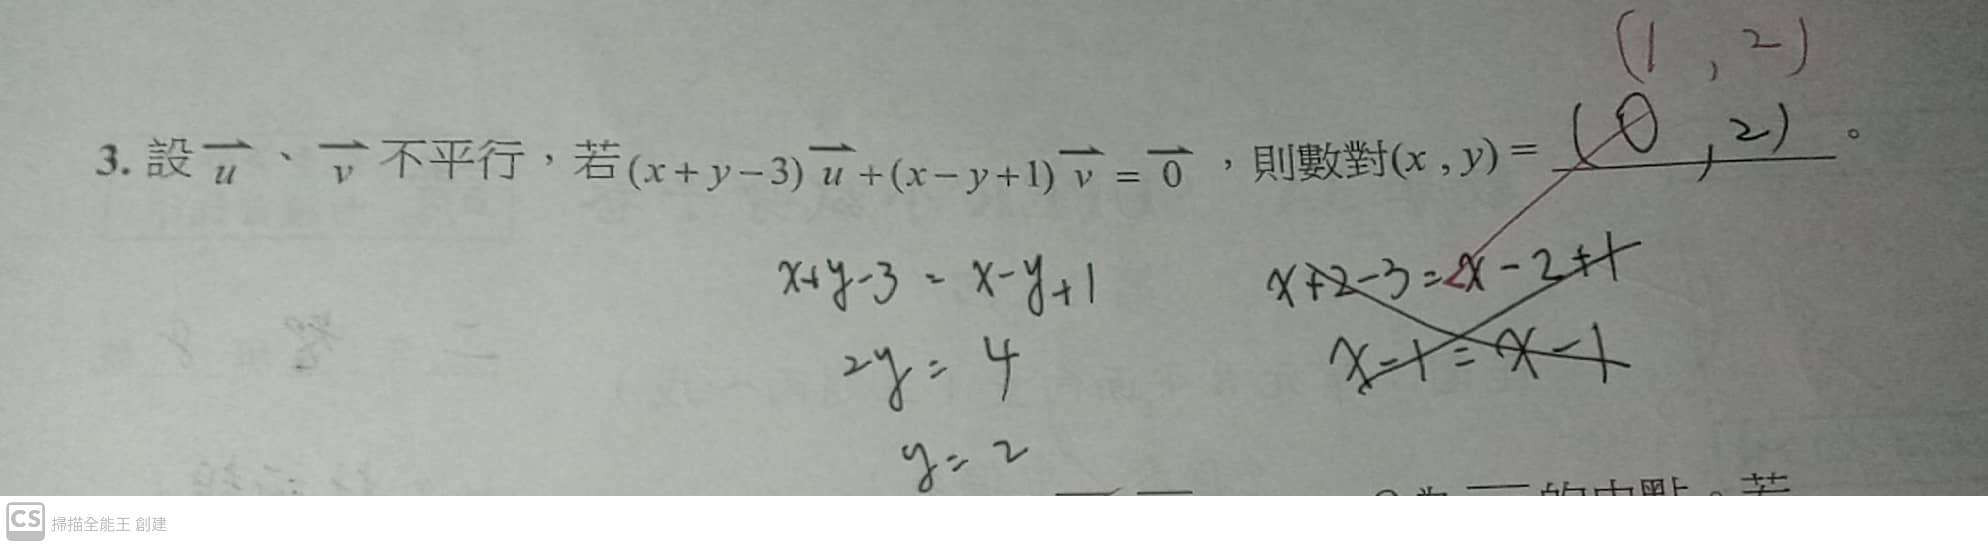 (1, 2)
3. 設 u、v 不平行，若(x+y−3) u +(x−y+1) v = 0，則數對(x , y)= (0, 2)。
x+y-3 = x-y+1
x+2-3=x-2+1
2y = 4
x-1=x-1
y= 2
的中點。若
CS 掃描全能王 創建